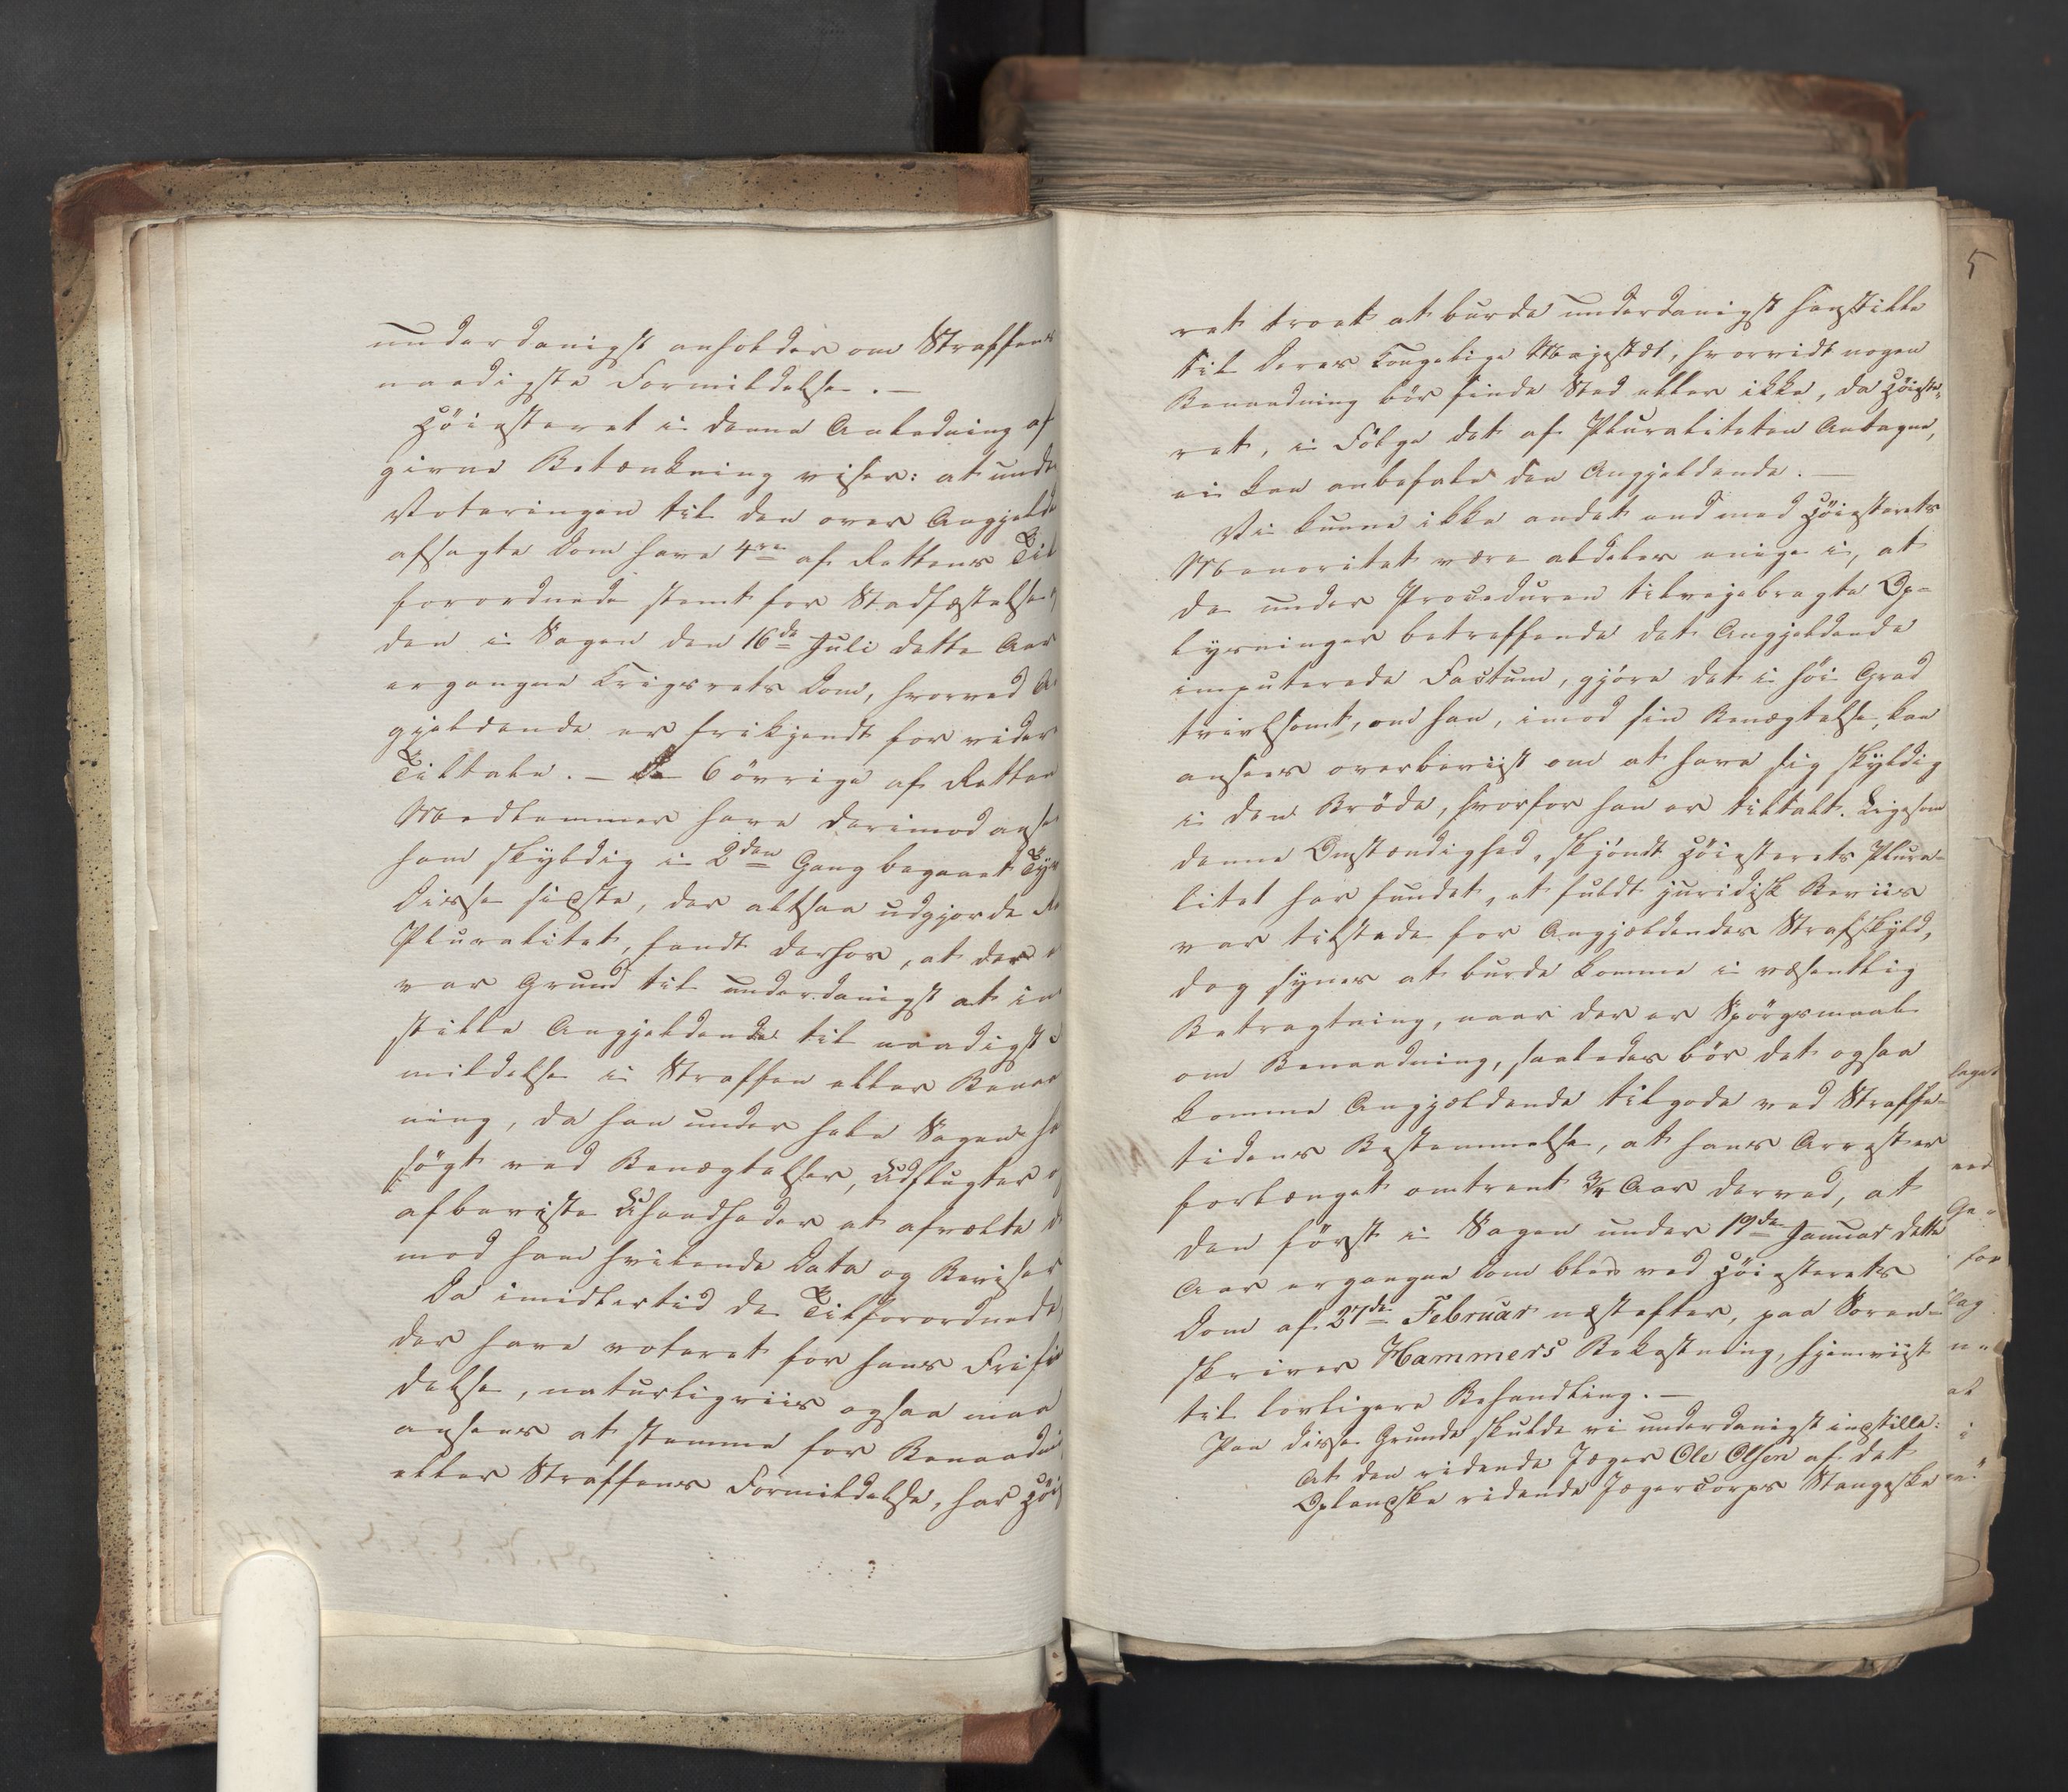 underdanigst anholder om Straffens
naadigste Formildelse. —
Höiesteret i denne Anledning af
givne Betænkning viser: at unde
Voteringen til den over Angjelde
afsagte Dom have 4re af Rettens Til
forordnede stemt for Stadfæstelse
den i Sagen den 16de Juli dette Aar
ergangne Krigsrets Dom, hvorved A
gjeldende er frikjendt for videre
Tiltale. — De 6 övrige af Retten
Medlemmer have derimod anse
ham skyldig i 2den Gang begaaet Tyv
Disse sidste, der altsaa udgjorde Re
Pluralitet, fandt derhos, at der
var Grund til underdanigst at in
stille Angjeldende til naadigst
mildelse i Straffen eller Benaa
ning, da han under hele Sagen ha
sögt ved Benægtelser, Udflugter o
afbeviste Usandheder at afvælte d
mod ham hvilende Data og Beviser
Da imidlertid de Tilforordnede
der have voteret for hans Frifin
delse, naturligviis ogsaa maa
ansees at stemme for Benaadni
eller Straffens Formildelse, har Höie
5
ret troet at burde underdanigst henstille
til Deres Kongelige Majestæt, hvorvidt nogen
Benaadning bör finde Sted eller ikke, da Höieste-
ret, i Fölge det af Pluraliteten Antagne,
ei kan anbefale den Angjeldende. —
Vi kunne ikke andet end med Höiesterets
Menoritet være aldeles enige i, at
de under Proceduren tilvejebragte Op-
lysninger betreffende det Angjeldende
imputerede Factum, gjöre det i höi Grad
tvivlsomt, om han, imod sin Benægtelse, kan
ansees overbeviist om at have sig skyldig
i den Bröde, hvorfor han er tiltalt. Ligesom
denne Omstændighed, skjöndt Höiesterets Plura-
litet har fundet, at fuldt juridisk Beviis
var tilstede for Angjældendes Strafskyld,
dog synes at burde komme i væsentlig
Betragtning, naar der er Spörgsmaal
om Benaadning, saaledes bör det ogsaa
komme Angjældende tilgode ved Straffe-
tidens Bestemmelse, at hans Arrest er
forlænget omtrent 3/4 Aar derved, at
den först i Sagen under 19de Januar dette
Aar ergangne Dom blev ved Höiesterets
Dom af 27de Februar næstefter, paa Soren-
skriver Hammers Bekostning, hjemviist
til lovligere Behandling. —
Paa disse Grunde skulde vi underdanigst indstille:
At den ridende Jæger Ole Olsen af det
Oplandske ridende Jægercorps Stangeske